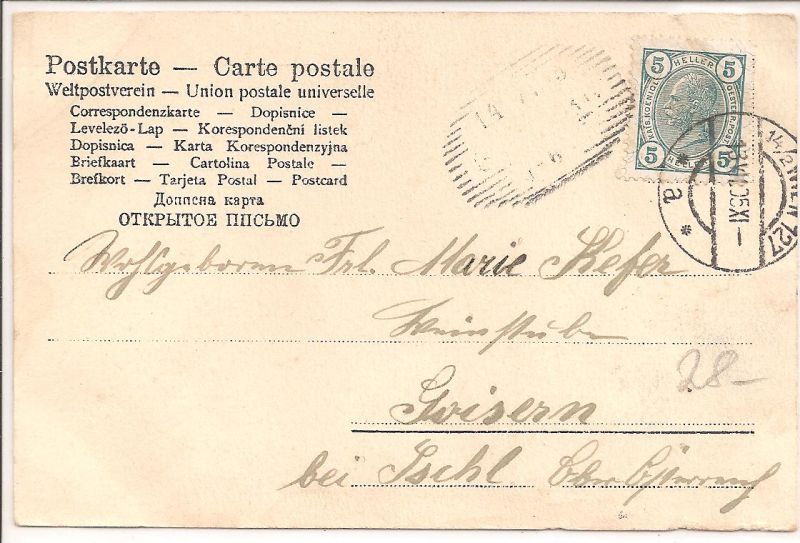 Postkarte — Carte postale
Weltpostverein — Union postale universelle
Correspondenzkarte — Dopisnice —
Levelező-Lap — Korespondenční listek
Dopisnica — Karta Korespondenzyjna
Briefkaart — Cartolina Postale —
Brefkort — Tarjeta Postal — Postcard
Дописна карта
ОТКРЫТОЕ ПИСЬМО
5 HELLER 5
KAIS. KOENIGL. OESTERR. POST
5 HELLER 5
14/2 WIEN 727
XI
a
Wohlgeboren Frl. Marie Kefer
Weinstube
28-
Goisern
bei Ischl Ober Österreich